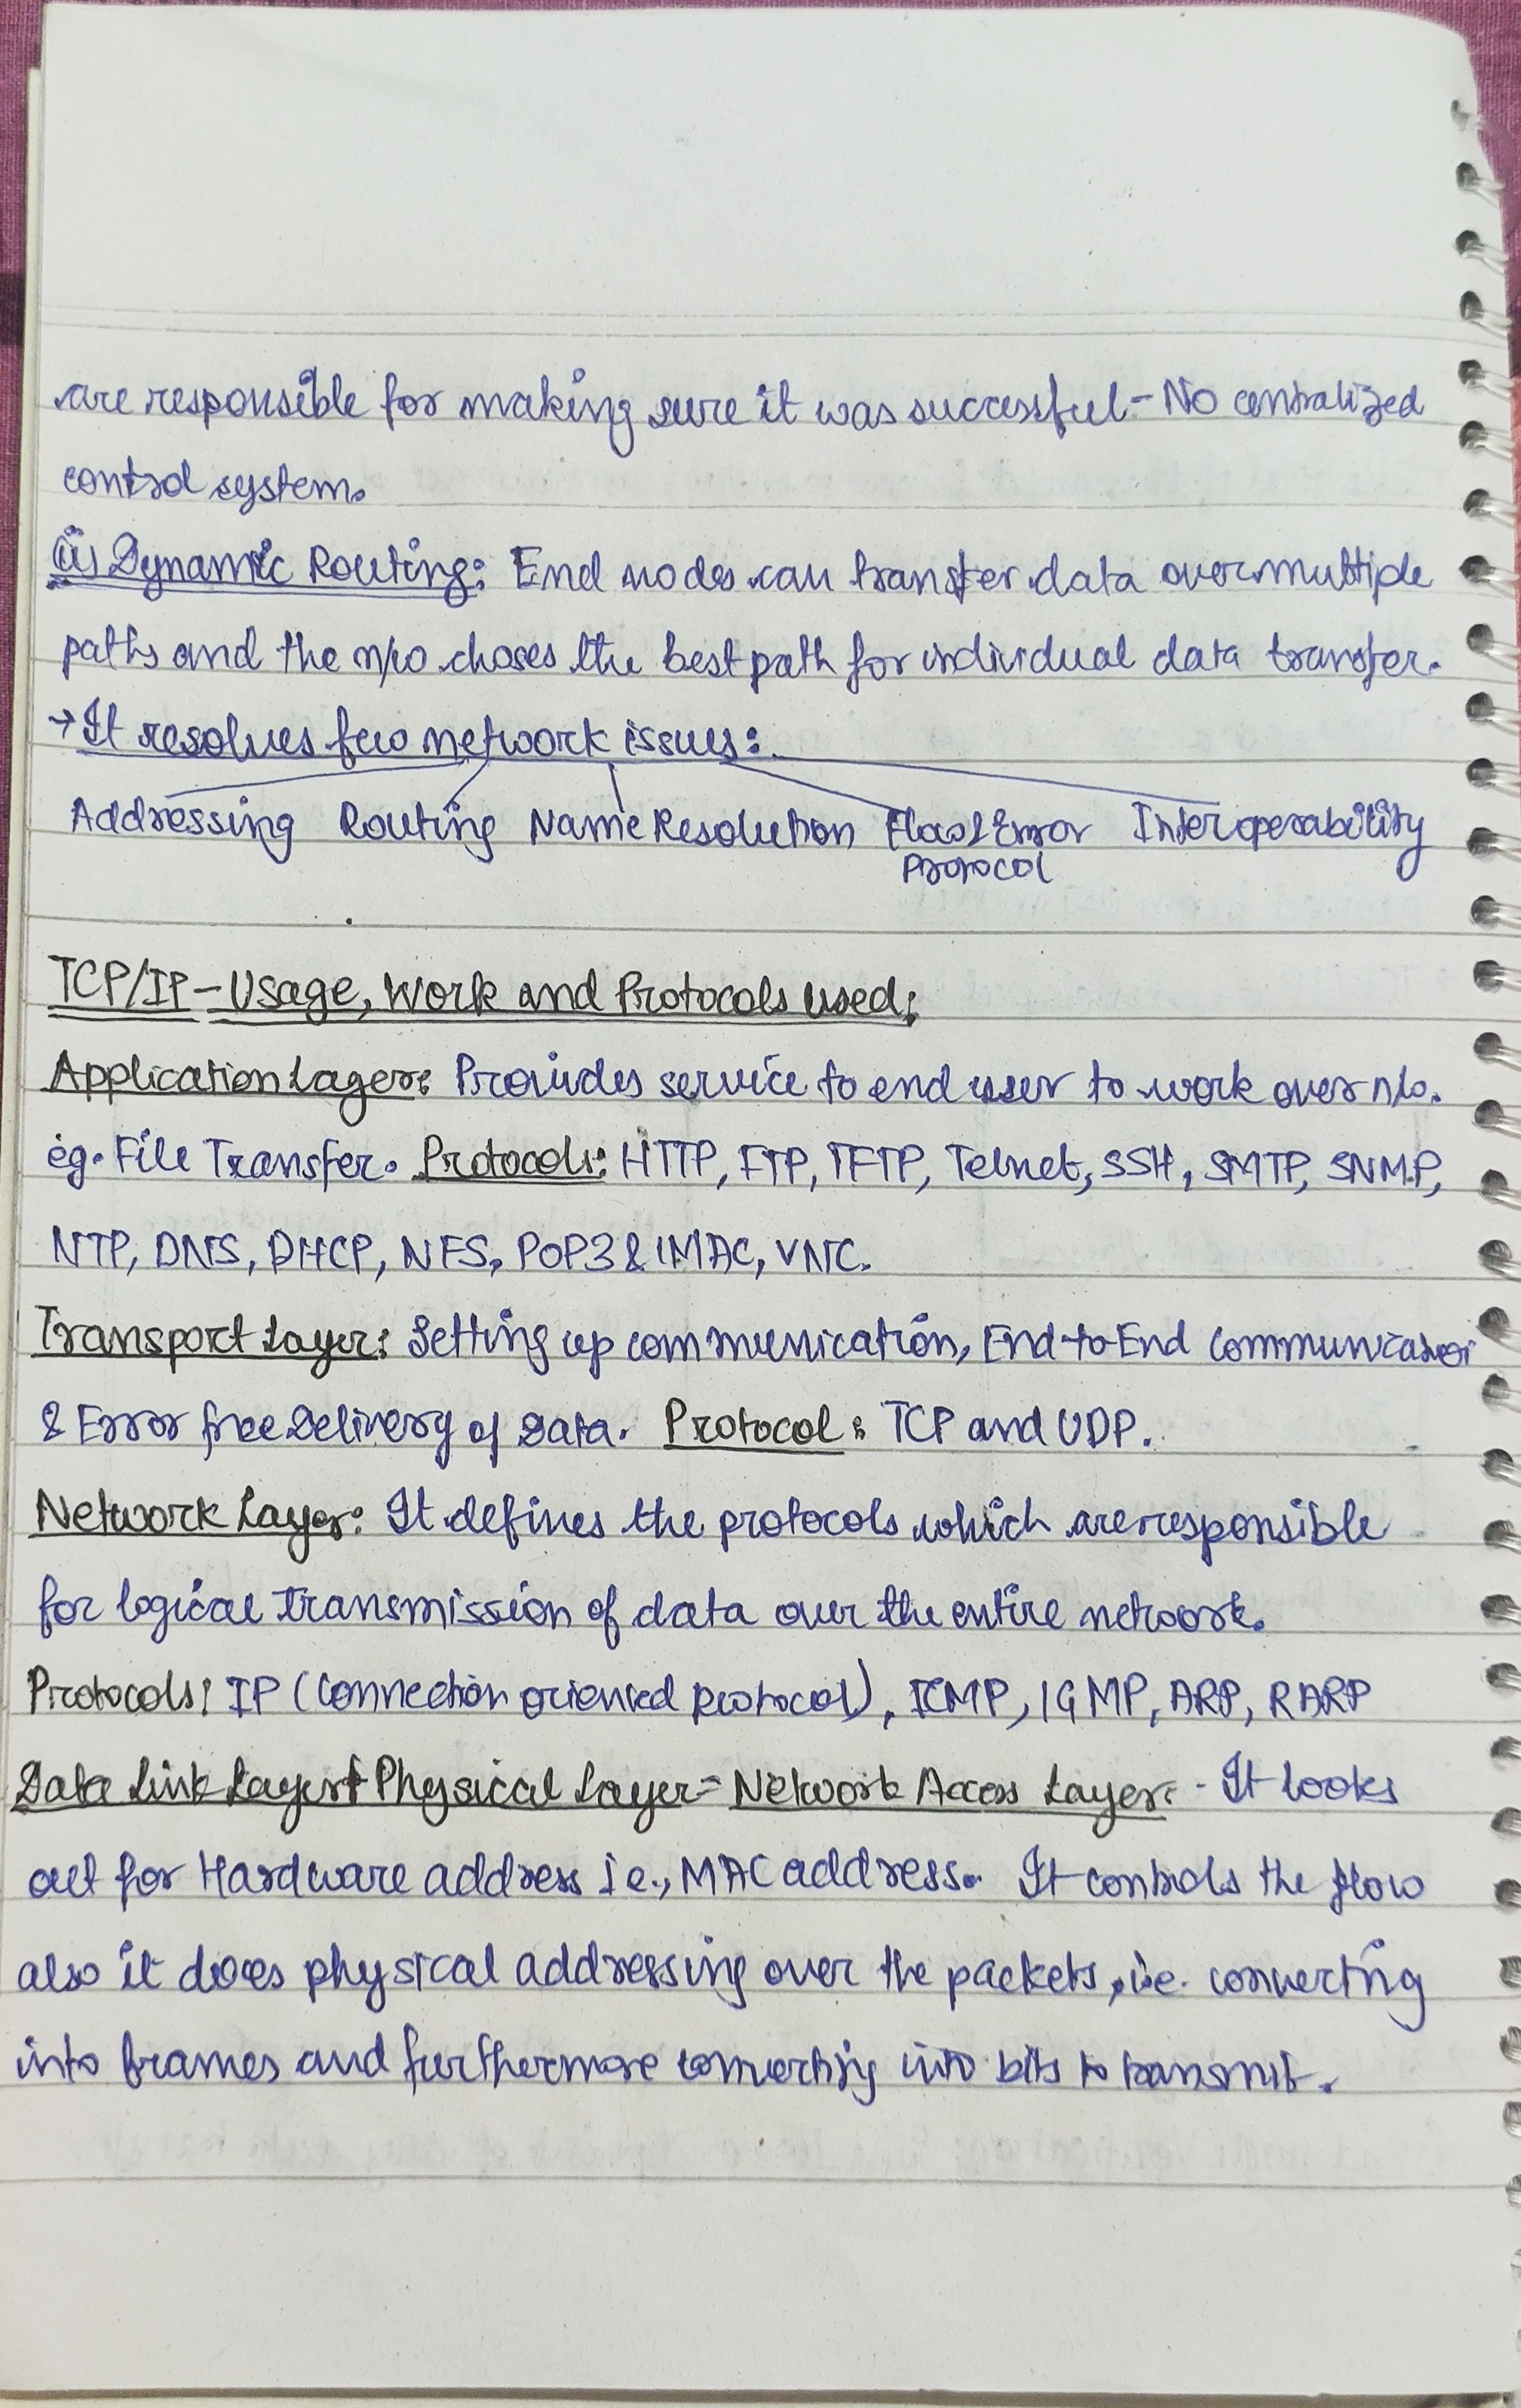 are responsible for making sure it was successful - No centralized
control system.
(ii) Dynamic Routing: End nodes can transfer data over multiple
paths and the n/w choses the best path for individual data transfer.
→ It resolves few network issues:
Addressing Routing Name Resolution Flow & Error Interoperability
Protocol
TCP/IP - Usage, Work and Protocols used:
Application Layer: Provides service to end user to work over n/w.
eg. File Transfer. Protocols: HTTP, FTP, TFTP, Telnet, SSH, SMTP, SNMP,
NTP, DNS, DHCP, NFS, POP3 & IMAC, VNC.
Transport Layer: Setting up communication, End-to-End Communication
& Error free Delivery of Data. Protocol: TCP and UDP.
Network Layer: It defines the protocols which are responsible
for logical transmission of data over the entire network.
Protocols: IP (Connection oriented protocol), ICMP, IGMP, ARP, RARP
Data Link Layer + Physical Layer = Network Access Layer: - It looks
out for Hardware address i.e., MAC address. It controls the flow
also it does physical addressing over the packets, i.e. converting
into frames and furthermore converting into bits to transmit.